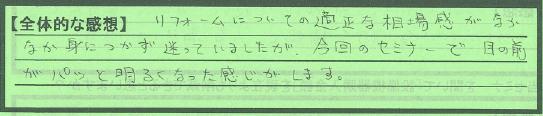 【全体的な感想】 リフォームについての適正な相場感がなか
なか身につかず迷っていましたが、今回のセミナーで目の前
がパッと明るくなった感じがします。